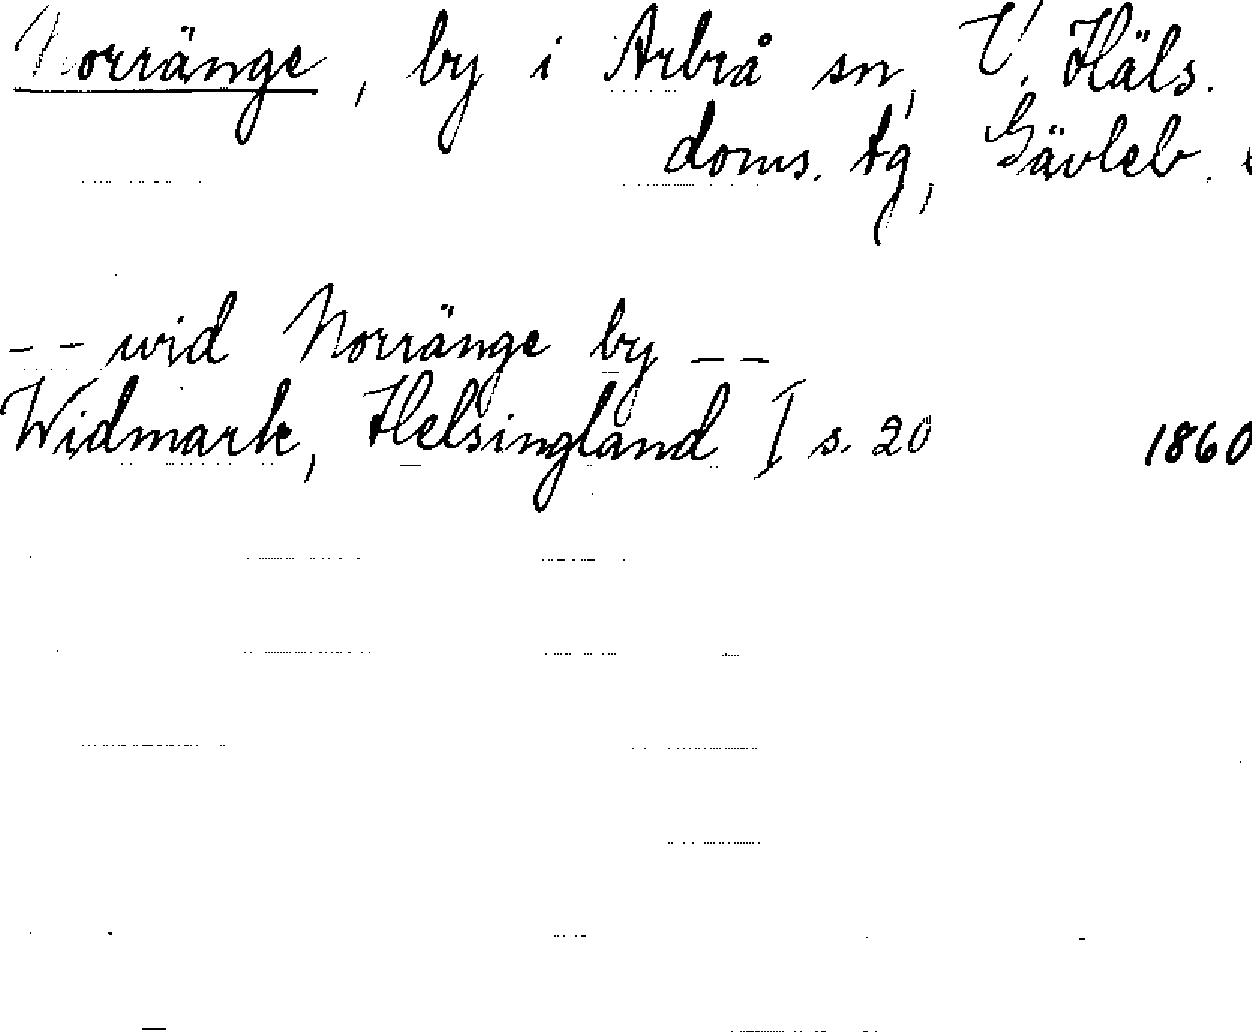 Norränge, by i Arbrå sn, V. Häls.
doms. tg, Gävleb.
-- wid Norränge by --
Widmark, Helsingland I s. 20 1860